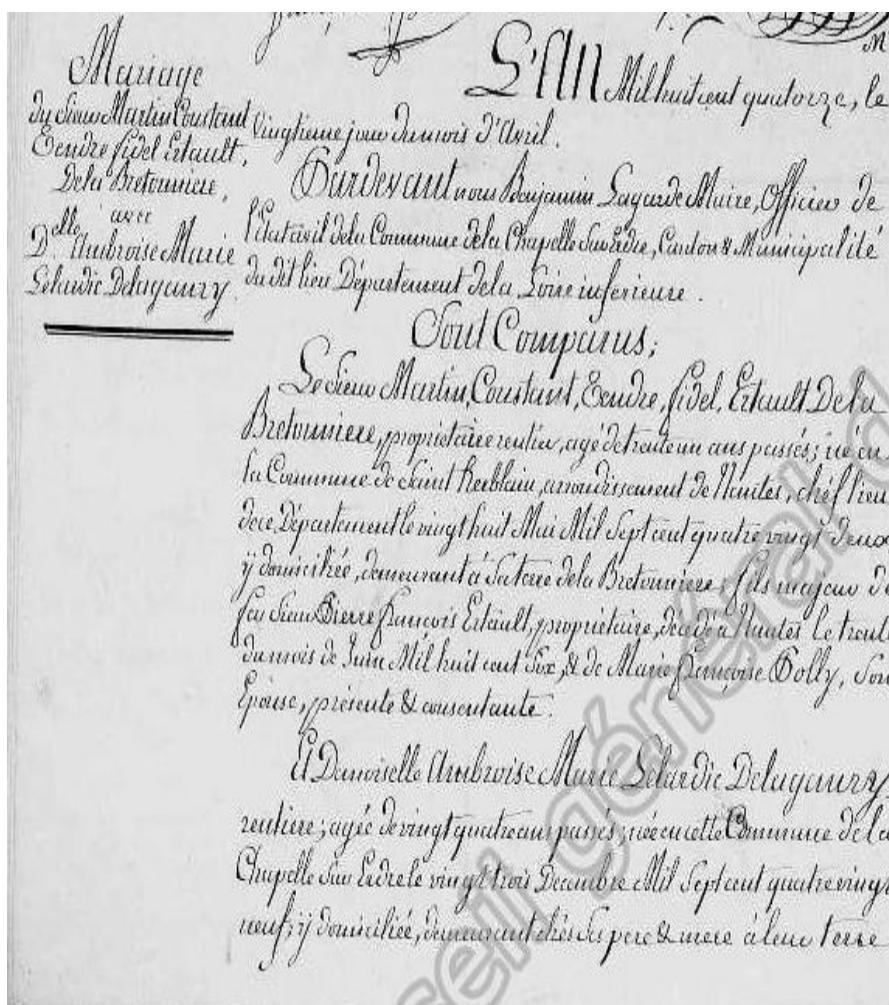 Mariage
du Sieur Martin Constant
Eendre fidel Ertault,
De la Bretonniere,
avec
D.elle Ambroise Marie
Lelardic Delaganry.
L'AN Mil huit cent quatorze, le
vingtieme jour du mois d'Avril.
Pardevant nous Benjamin Lagarde Maire, Officier de
l'Etat civil de la Commune de la Chapelle Sur Erdre, Canton & Municipalité
du dit lieu Département de la Loire inferieure.
Sont Comparus;
Le Sieur Martin, Constant, Eendre, fidel, Ertault De la
Bretonniere, propriétaire rentier, agé de trente un ans passés; né en
la Commune de Saint herblain, arrondissement de Nantes, chéf lieu
de ce Département le vingt huit Mai Mil Sept cent quatre vingt deux
ÿ domiciliée, demeurant à Sa terre de la Bretonniere, fils majeur de
feu Sieur Pierre françois Ertault, propriétaire, décédé à Nantes le trente
du mois de Juin Mil huit cent Six, & de Marie françoise Dolly, Son
Epouse, présente & consentante.
Et Demoiselle Ambroise Marie Lelardic Delaganry,
rentiere; agée de vingt quatre ans passés; née en cette Commune de la
Chapelle Sur Erdre le vingt trois Decembre Mil Sept cent quatre vingt
neuf; ÿ domiciliée, demeurant chés Ses pere & mere à leur terre
seil général d